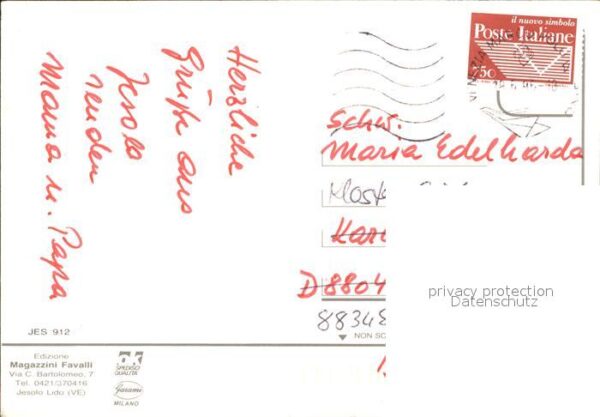 Herzliche
Grüße aus
Jesolo
senden
Mama u. Papa
il nuovo simbolo
Poste Italiane
750
Schw.
Maria Edelharda
Klost
Kar
D 8804
88348
privacy protection
Datenschutz
JES 912
NON SC
Edizione
Magazzini Favalli
Via C. Bartolomeo, 7
Tel. 0421/370416
Jesolo Lido (VE)
Garami
MILANO